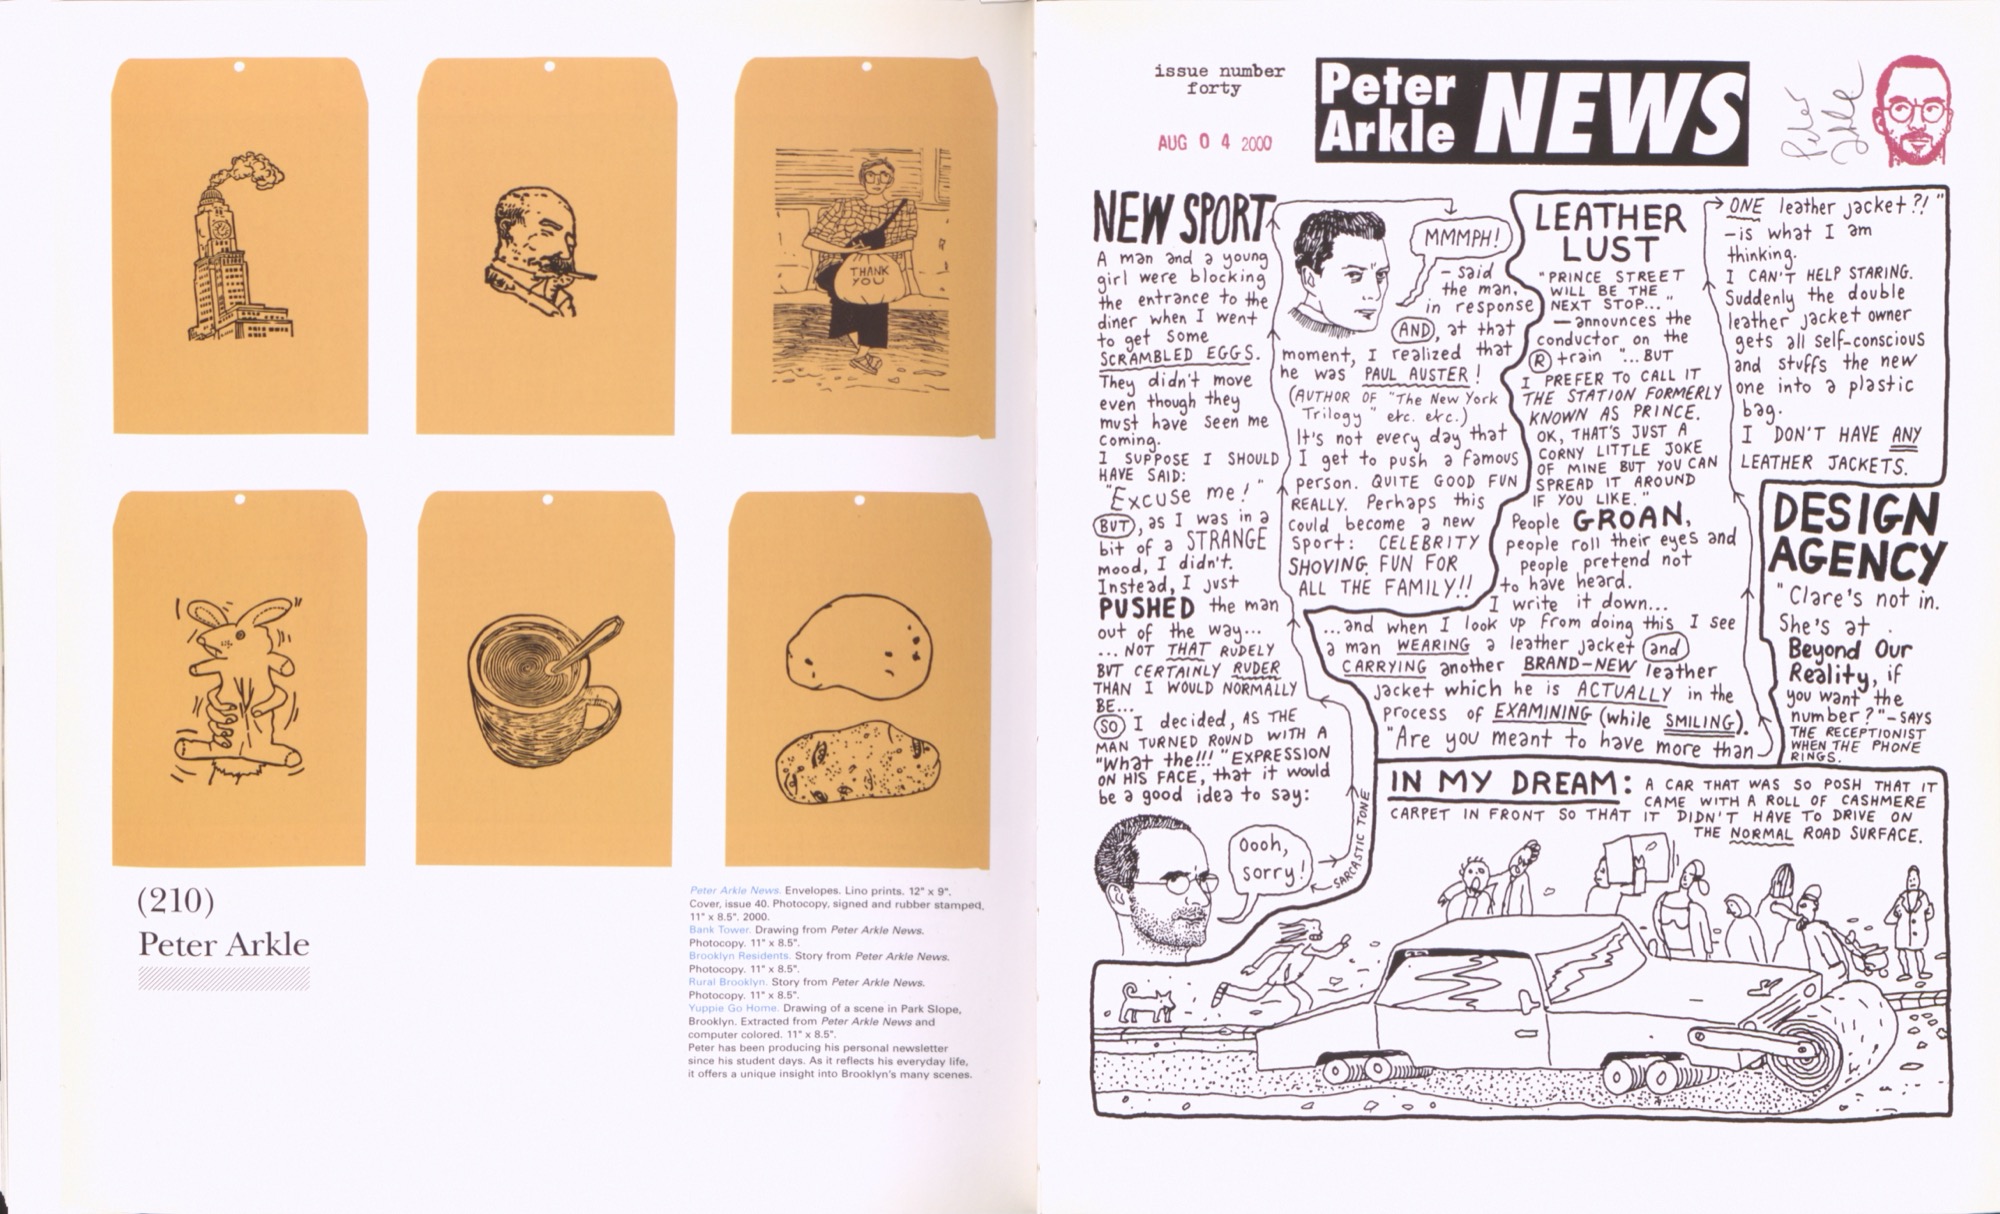 THANK
YOU
(210)
Peter Arkle
Peter Arkle News. Envelopes. Lino prints. 12" x 9".
Cover, issue 40. Photocopy, signed and rubber stamped,
11" x 8.5". 2000.
Bank Tower. Drawing from Peter Arkle News.
Photocopy. 11" x 8.5".
Brooklyn Residents. Story from Peter Arkle News.
Photocopy. 11" x 8.5".
Rural Brooklyn. Story from Peter Arkle News.
Photocopy. 11" x 8.5".
Yuppie Go Home. Drawing of a scene in Park Slope,
Brooklyn. Extracted from Peter Arkle News and
computer colored. 11" x 8.5".
Peter has been producing his personal newsletter
since his student days. As it reflects his everyday life,
it offers a unique insight into Brooklyn's many scenes.
issue number
forty
AUG 04 2000
Peter
Arkle
NEWS
Peter
Arkle
NEW SPORT
A man and a young
girl were blocking
the entrance to the
diner when I went
to get some
SCRAMBLED EGGS.
They didn't move
even though they
must have seen me
coming.
I SUPPOSE I SHOULD
HAVE SAID:
"Excuse me!"
BUT, as I was in a
bit of a STRANGE
mood, I didn't.
Instead, I just
PUSHED the man
out of the way...
...NOT THAT RUDELY
BUT CERTAINLY RUDER
THAN I WOULD NORMALLY
BE...
SO I decided, AS THE
MAN TURNED ROUND WITH A
"What the!!!" EXPRESSION
ON HIS FACE, that it would
be a good idea to say:
Oooh,
sorry!
SARCASTIC TONE
MMMPH!
- said
the man,
in response
AND, at that
moment, I realized that
he was PAUL AUSTER!
(AUTHOR OF "The New York
Trilogy" etc. etc.)
It's not every day that
I get to push a famous
person. QUITE GOOD FUN
REALLY. Perhaps this
could become a new
sport: CELEBRITY
SHOVING. FUN FOR
ALL THE FAMILY!!
LEATHER
LUST
"PRINCE STREET
WILL BE THE
NEXT STOP..."
—announces the
conductor on the
R train "...BUT
I PREFER TO CALL IT
THE STATION FORMERLY
KNOWN AS PRINCE.
OK, THAT'S JUST A
CORNY LITTLE JOKE
OF MINE BUT YOU CAN
SPREAD IT AROUND
IF YOU LIKE."
People GROAN,
people roll their eyes and
people pretend not
to have heard.
I write it down...
...and when I look up from doing this I see
a man WEARING a leather jacket and
CARRYING another BRAND-NEW leather
jacket which he is ACTUALLY in the
process of EXAMINING (while SMILING).
"Are you meant to have more than
ONE leather jacket?!"
-is what I am
thinking.
I CAN'T HELP STARING.
Suddenly the double
leather jacket owner
gets all self-conscious
and stuffs the new
one into a plastic
bag.
I DON'T HAVE ANY
LEATHER JACKETS.
DESIGN
AGENCY
"Clare's not in.
She's at
Beyond Our
Reality, if
you want the
number?"-SAYS
THE RECEPTIONIST
WHEN THE PHONE
RINGS.
IN MY DREAM: A CAR THAT WAS SO POSH THAT IT
CAME WITH A ROLL OF CASHMERE
CARPET IN FRONT SO THAT IT DIDN'T HAVE TO DRIVE ON
THE NORMAL ROAD SURFACE.